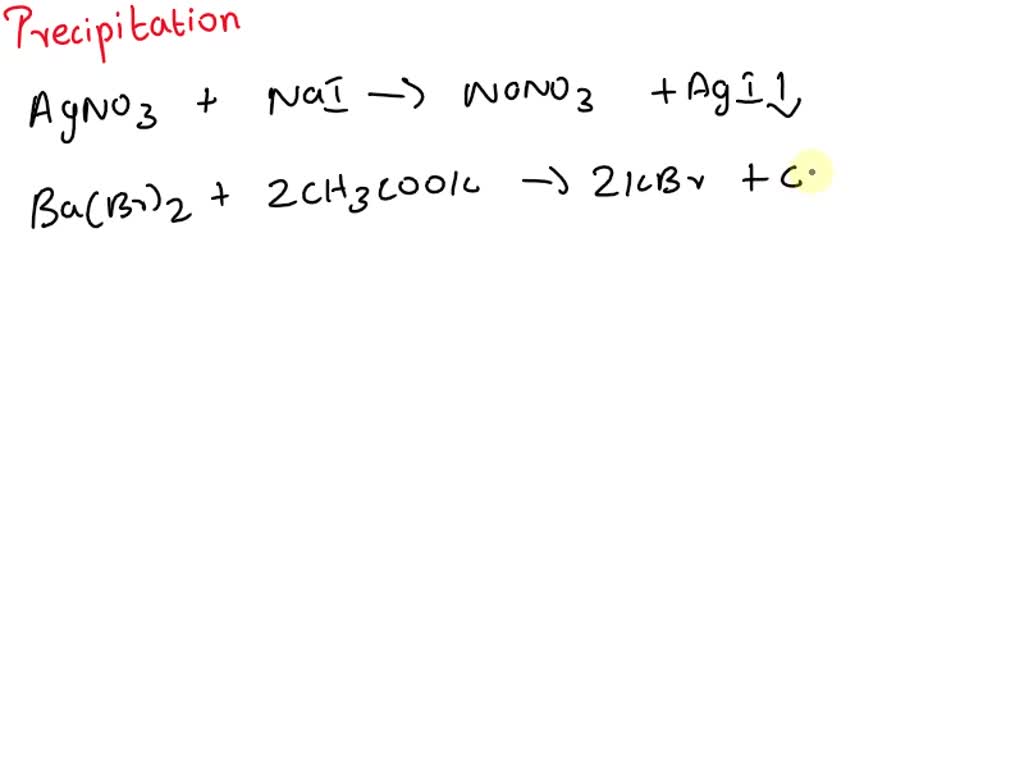 Precipitation
AgNO3 + NaI → NaNO3 + AgI↓
Ba(Br)2 + 2CH3COOK → 2KBr + C